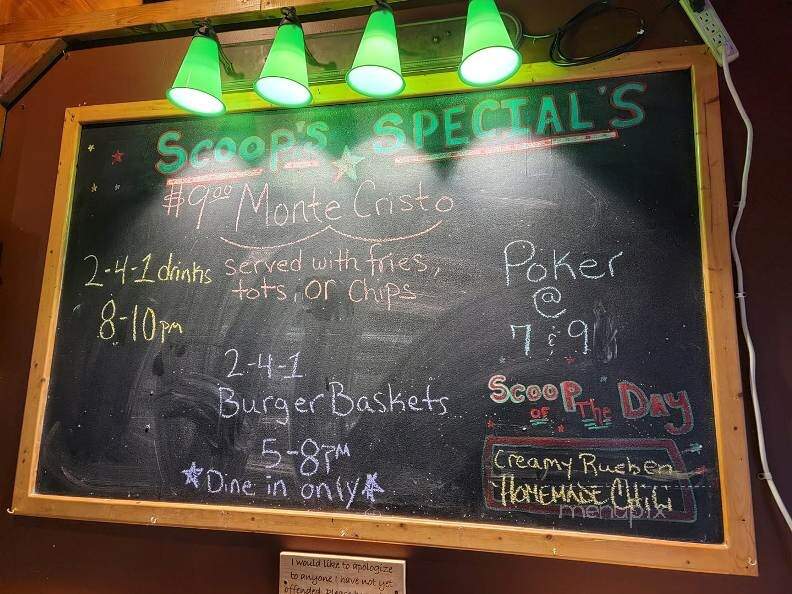 SCOOP'S SPECIAL'S
$9.00 Monte Cristo
served with fries,
tots, or chips
2-4-1 drinks
8-10pm
2-4-1
Burger Baskets
5-8PM
Dine in only
Poker
@
7 & 9
SCOOP OF THE DAY
Creamy Rueben
HOMEMADE CHILI
menupix
I would like to apologize
to anyone I have not yet
offended. Please